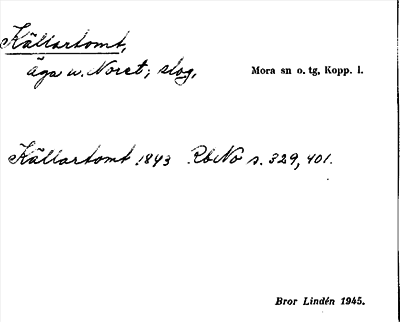 Källartomt,
äga u. Noret; slog,
Mora sn o. tg, Kopp. l.
Källartomt 1843 RbNo s. 329, 401.
Bror Lindén 1945.